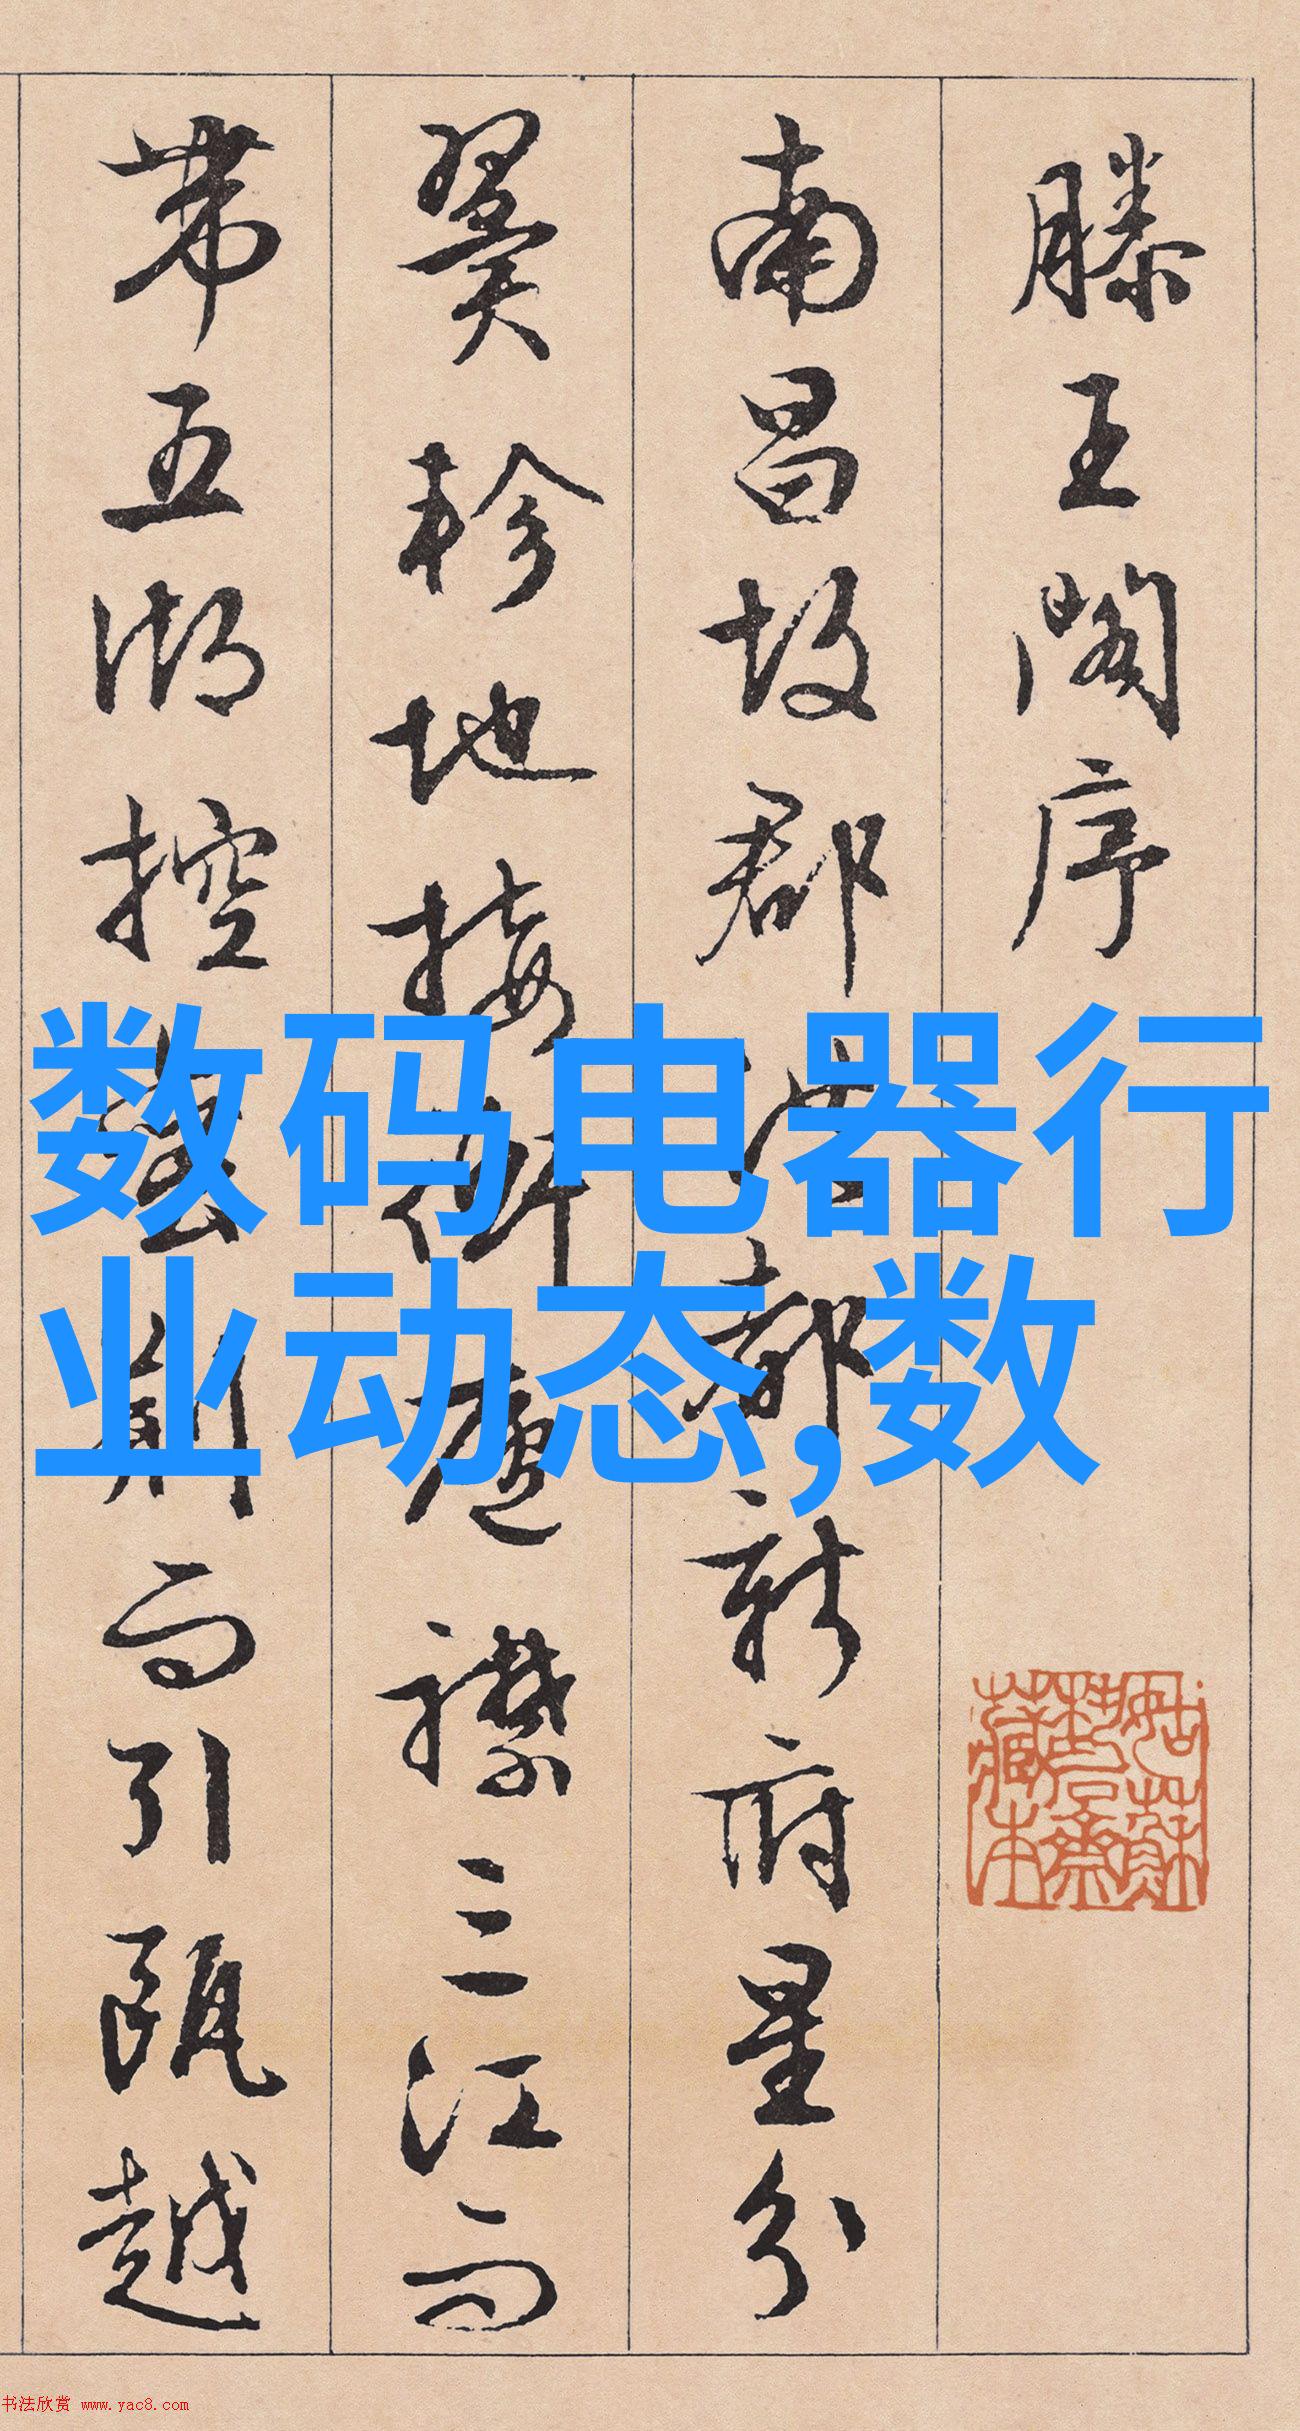 滕王閣序
南昌故郡洪都新府星分
翼軫地接衡廬襟三江而
帶五湖控蠻荊而引甌越
数码电器行
业动态,数
书法欣赏 www.yac8.com